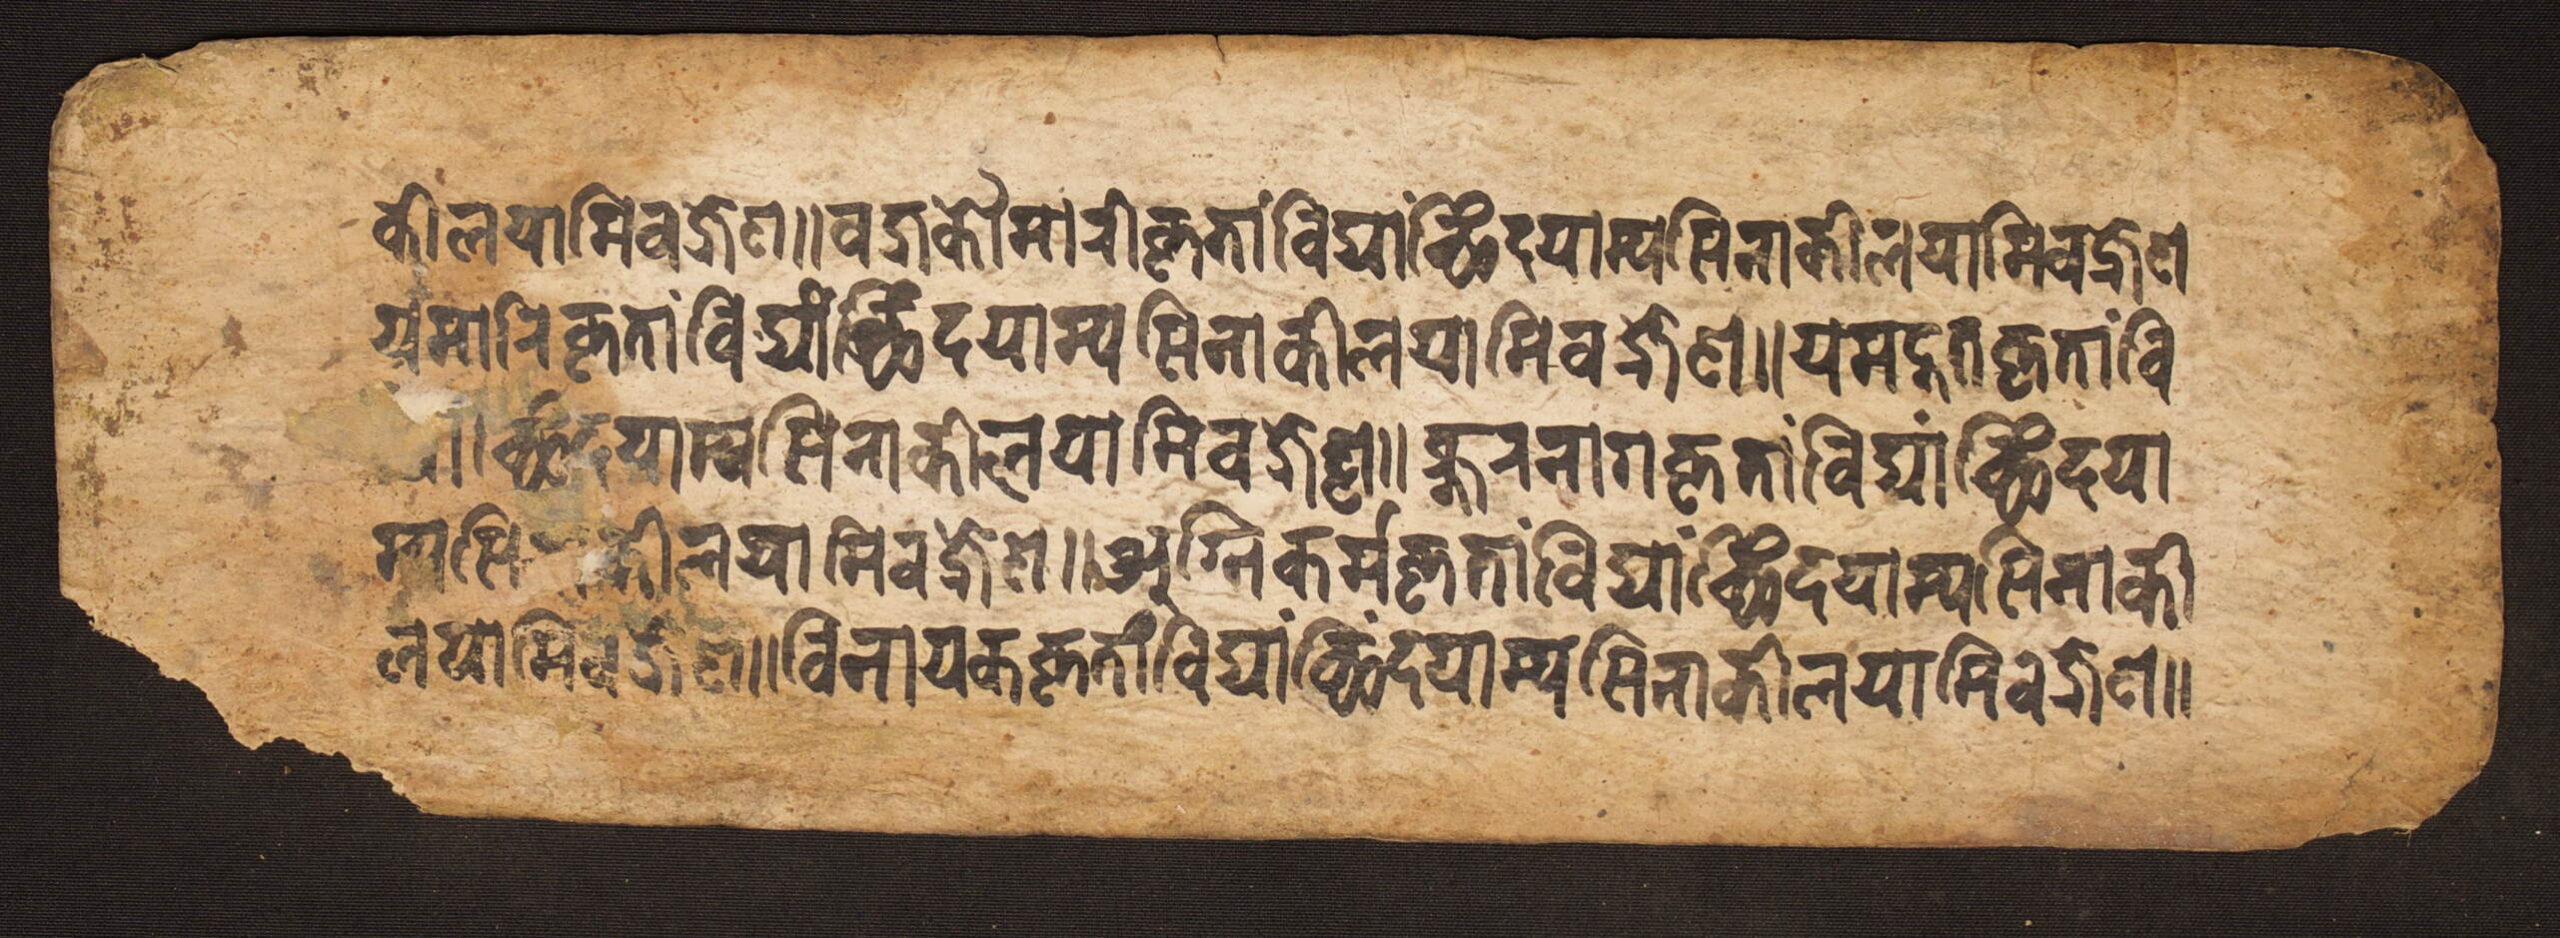 कीलयामिवज्रेण॥वज्रकौमारीकृतांविद्यांच्छिदयाम्यसिनाकीलयामिवज्रेण
यमारिकृतांविद्यांच्छिंदयाम्यसिनाकीलयामिवज्रेण॥यमदूतकृतांवि
च्छिंदयाम्यसिनाकीलयामिवज्रेण॥क्रूरनागकृतांविद्यांच्छिंदया
म्यसि कीलयामिवज्रेण॥अग्निकर्मकृतांविद्यांच्छिंदयाम्यसिनाकी
लयामिवज्रेण॥विनायककृतांविद्यांच्छिंदयाम्यसिनाकीलयामिवज्रेण॥